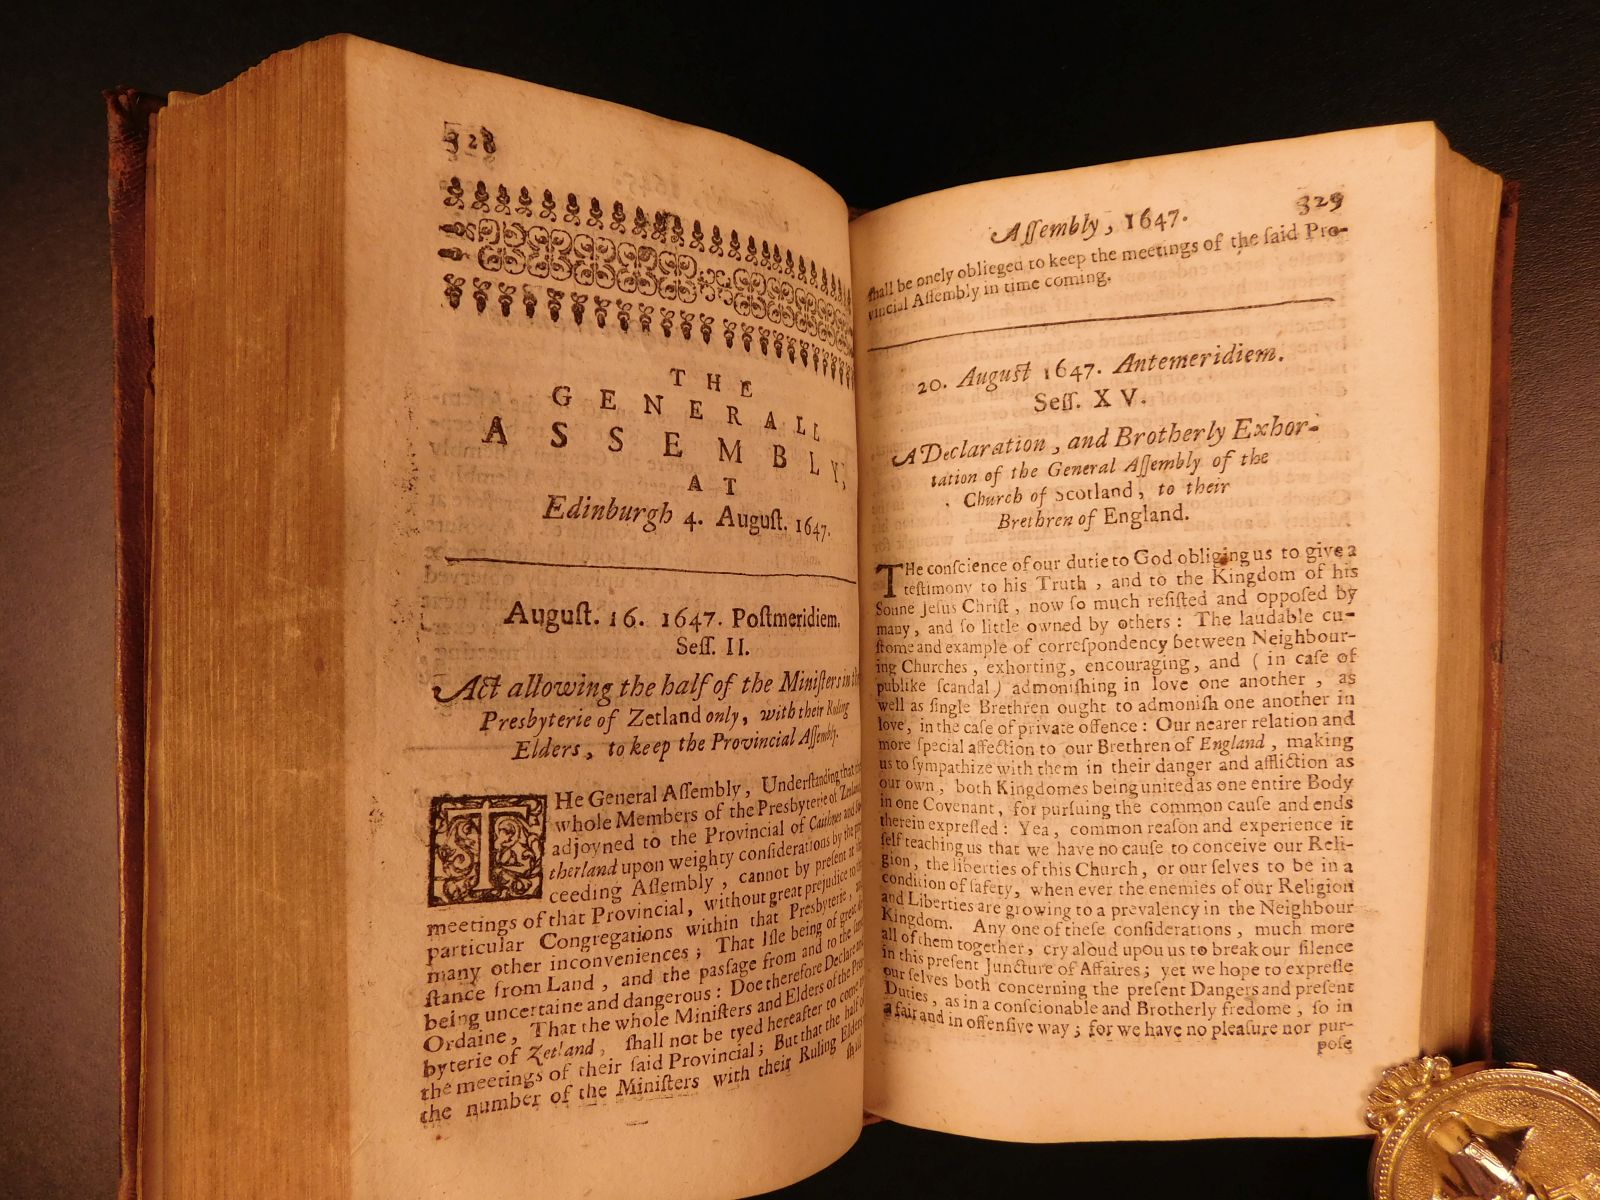 328
THE
GENERALL
ASSEMBLY,
AT
Edinburgh 4. Auguſt. 1647.
Auguſt. 16. 1647. Poſtmeridiem.
Seſſ. II.
Act allowing the half of the Miniſters in the
Presbyterie of Zetland only, with their Ruling
Elders, to keep the Provincial Aſſembly.
THe General Aſſembly, Underſtanding that the
whole Members of the Presbyterie of Zetland
adjoyned to the Provincial of Caithnes and
therland upon weighty conſiderations by the
ceeding Aſſembly, cannot by preſent at the
meetings of that Provincial, without great prejudice to
particular Congregations within that Presbyterie,
many other inconveniences; That Iſle being of great
ſtance from Land, and the paſſage from and to the ſame
being uncertaine and dangerous: Doe therefore Declare and
Ordaine, That the whole Miniſters and Elders of the
byterie of Zetland, ſhall not be tyed hereafter to come
the meetings of their ſaid Provincial; But that the half of
the number of the Miniſters with their Ruling Elders
ſhall
Aſſembly, 1647. 329
ſhall be onely oblieged to keep the meetings of the ſaid Pro-
vincial Aſſembly in time coming.
20. Auguſt 1647. Antemeridiem.
Seſſ. XV.
A Declaration, and Brotherly Exhor-
tation of the General Aſſembly of the
Church of Scotland, to their
Brethren of England.
THe conſcience of our dutie to God obliging us to give a
teſtimony to his Truth, and to the Kingdom of his
Sonne Jeſus Chriſt, now ſo much reſiſted and oppoſed by
many, and ſo little owned by others: The laudable cu-
ſtome and example of correſpondency between Neighbour-
ing Churches, exhorting, encouraging, and (in caſe of
publike ſcandal) admoniſhing in love one another, as
well as ſingle Brethren ought to admoniſh one another in
love, in the caſe of private offence: Our nearer relation and
more ſpecial affection to our Brethren of England, making
us to ſympathize with them in their danger and affliction as
our own, both Kingdomes being united as one entire Body
in one Covenant, for purſuing the common cauſe and ends
therein expreſſed: Yea, common reaſon and experience it
ſelf teaching us that we have no cauſe to conceive our Reli-
gion, the liberties of this Church, or our ſelves to be in a
condition of ſafety, when ever the enemies of our Religion
and Liberties are growing to a prevalency in the Neighbour
Kingdom. Any one of theſe conſiderations, much more
all of them together, cry aloud upon us to break our ſilence
in this preſent Juncture of Affaires; yet we hope to expreſſe
our ſelves both concerning the preſent Dangers and preſent
Duties, as in a conſcionable and Brotherly fredome, ſo in
a fair and in offenſive way; for we have no pleaſure nor pur-
poſe